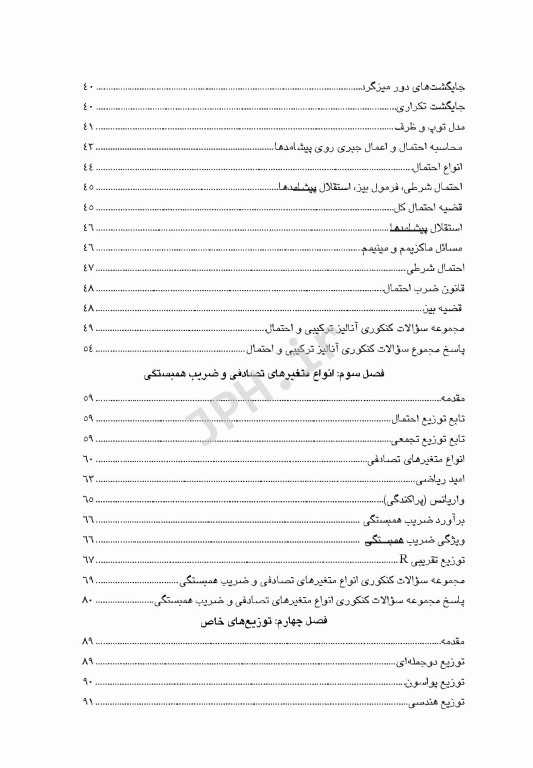 جایگشت‌های دور میزگرد ........ ۴۰
جایگشت تکراری ........ ۴۰
مدل توپ و ظرف ........ ۴۱
محاسبه احتمال و اعمال جبری روی پیشامدها ........ ۴۳
انواع احتمال ........ ۴۴
احتمال شرطی، فرمول بیز، استقلال پیشامدها ........ ۴۵
قضیه احتمال کل ........ ۴۵
استقلال پیشامدها ........ ۴۶
مسائل ماکزیمم و مینیمم ........ ۴۶
احتمال شرطی ........ ۴۷
قانون ضرب احتمال ........ ۴۸
قضیه بیز ........ ۴۸
مجموعه سؤالات کنکوری آنالیز ترکیبی و احتمال ........ ۴۹
پاسخ مجموع سؤالات کنکوری آنالیز ترکیبی و احتمال ........ ۵۴
فصل سوم: انواع متغیرهای تصادفی و ضریب همبستگی
مقدمه ........ ۵۹
تابع توزیع احتمال ........ ۵۹
تابع توزیع تجمعی ........ ۵۹
انواع متغیرهای تصادفی ........ ۶۰
امید ریاضی ........ ۶۳
واریانس (پراکندگی) ........ ۶۵
برآورد ضریب همبستگی ........ ۶۶
ویژگی ضریب همبستگی ........ ۶۶
توزیع تقریبی R ........ ۶۷
مجموعه سؤالات کنکوری انواع متغیرهای تصادفی و ضریب همبستگی ........ ۶۹
پاسخ مجموعه سؤالات کنکوری انواع متغیرهای تصادفی و ضریب همبستگی ........ ۸۰
فصل چهارم: توزیع‌های خاص
مقدمه ........ ۸۹
توزیع دوجمله‌ای ........ ۸۹
توزیع پواسون ........ ۹۰
توزیع هندسی ........ ۹۱
JPH.ir